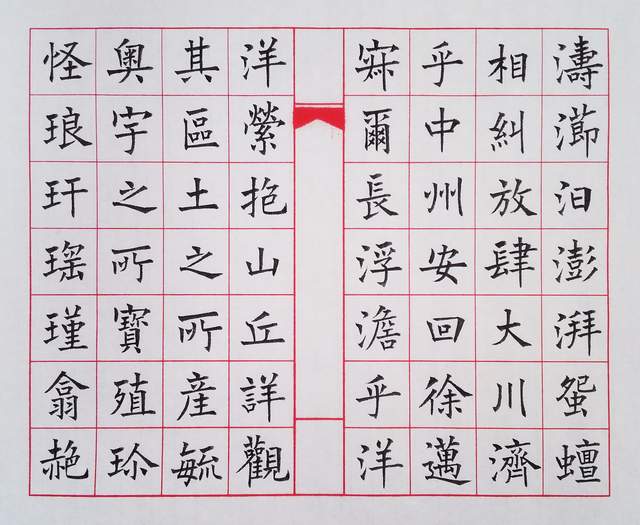 濤瀄汩澎湃䖤蟺
相糾放肆大川濟
乎中州安回徐邁
寂爾長浮澹乎洋
洋縈抱山丘詳觀
其區土之所産毓
奧宇之所寶殖珎
怪琅玕瑤瑾翕赩